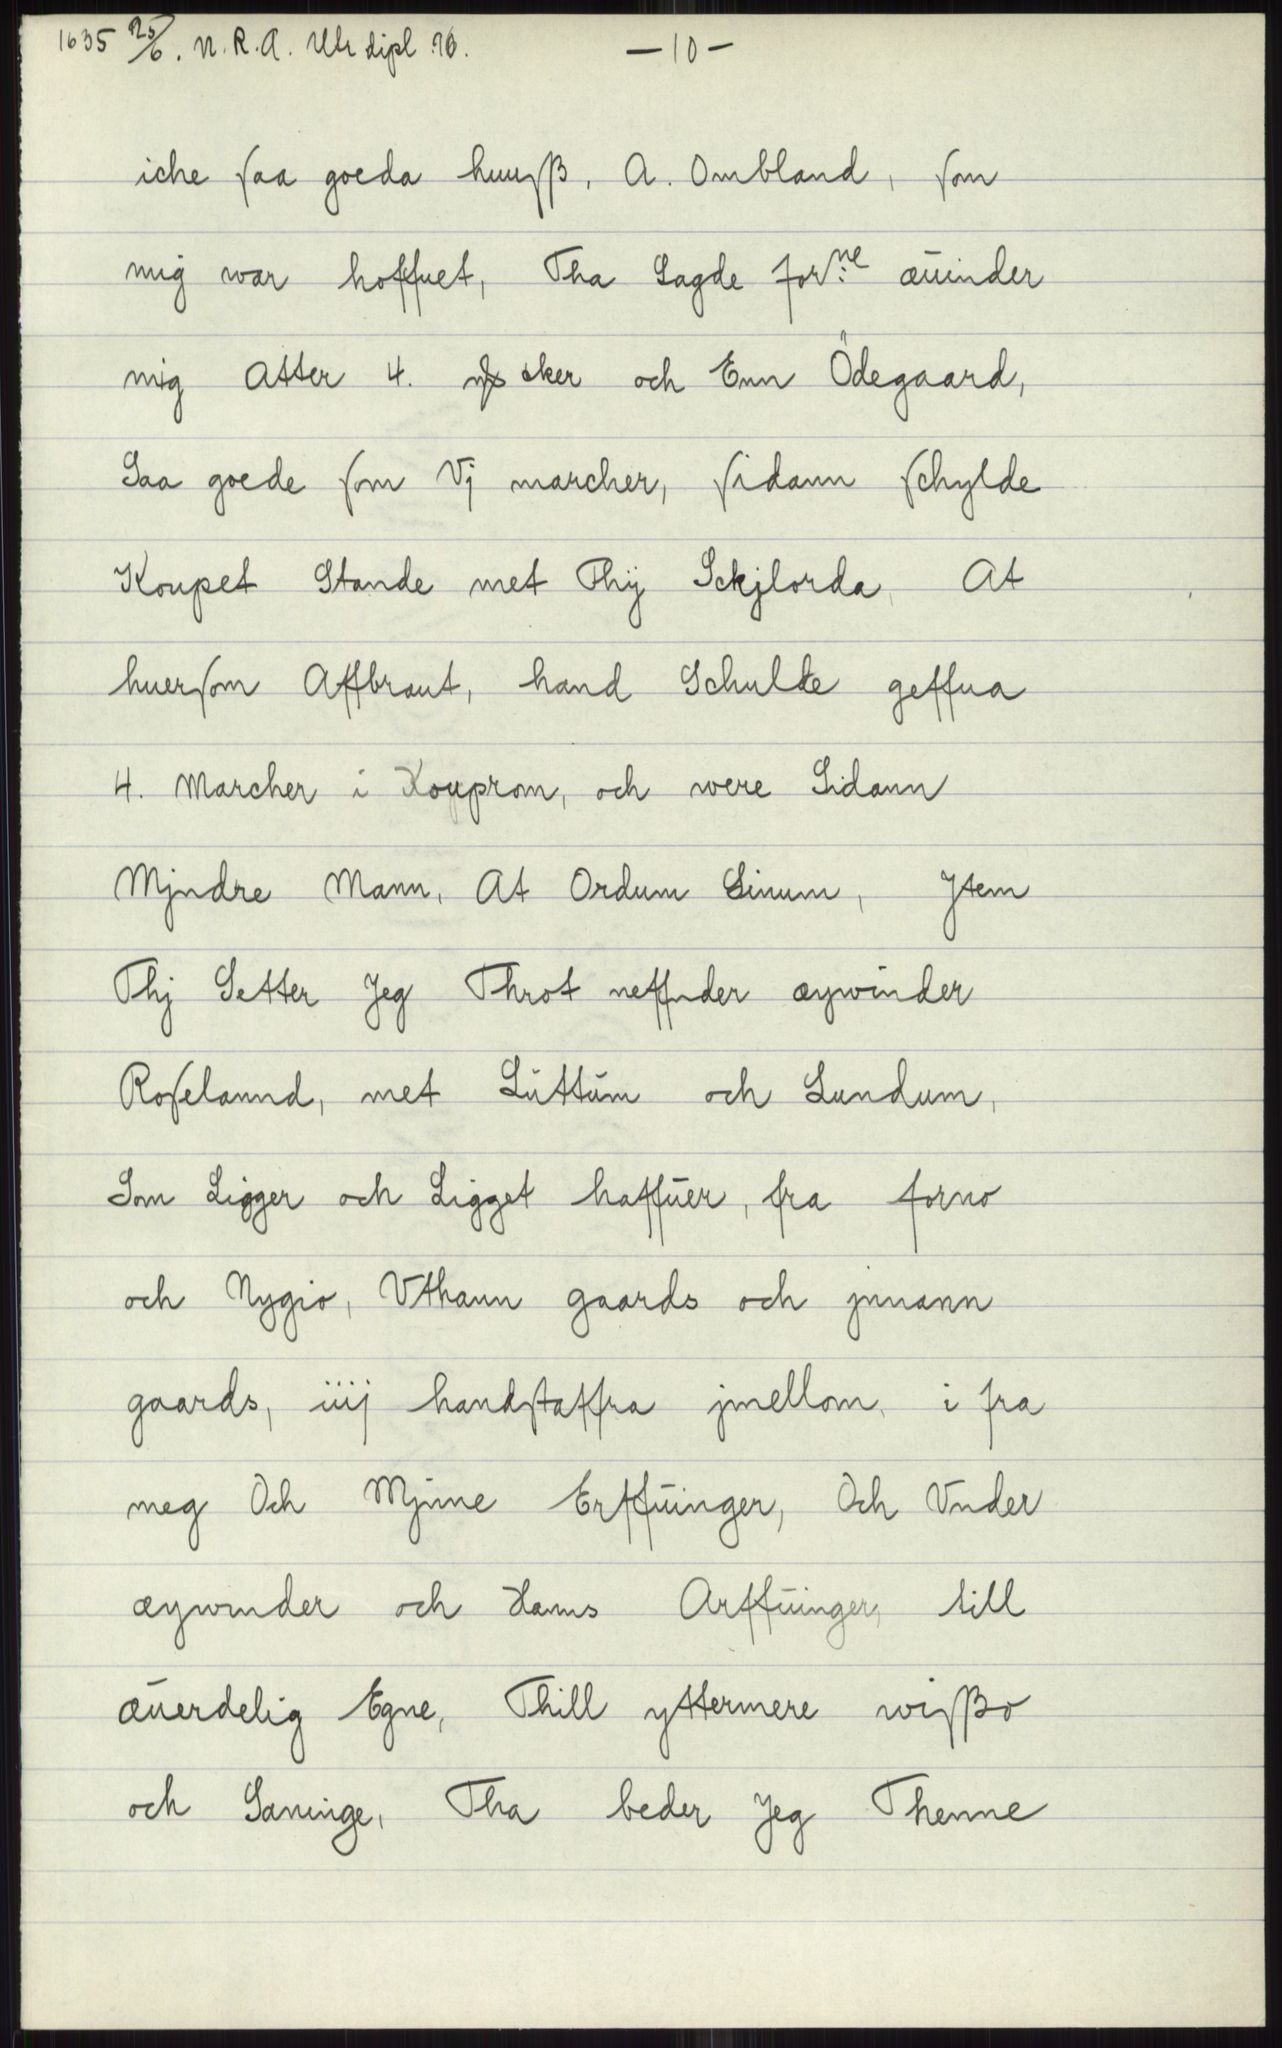 1635 25/6. N.R.A. Utr dipl 76. —10—
iche saa goeda huusß, A. Ombland, som
mig war hoffuet, Tha Lagde forne: æuinder
mig Atter 4. ker och Enn Ödegaard,
Saa goede som Vj marcher, sidann schylde
Koupet Stande met Thij Sckjlorda, At
huersom Affbraut, hand Schulte geffua
4. Marcher i Kouprom, och were Sidann
Mjndre Mann, At Ordum Sinum, Jtem
Thj Setter Jeg Throt neffnder æywinder
Roselannd, met Luttum och Lundum,
Som Ligger och Ligget haffuer, fra forno
och Nygio, Vthann gaards och jnnann
gaards, iiij handstaffra jmellom, i fra
meg Och Mjnne Erffuinger, Och Vnder
æywnder och Hanns Arffuinger, till
æuerdelig Egne, Thill yttermere wisßo
och Saninge, Tha beder Jeg Thenne